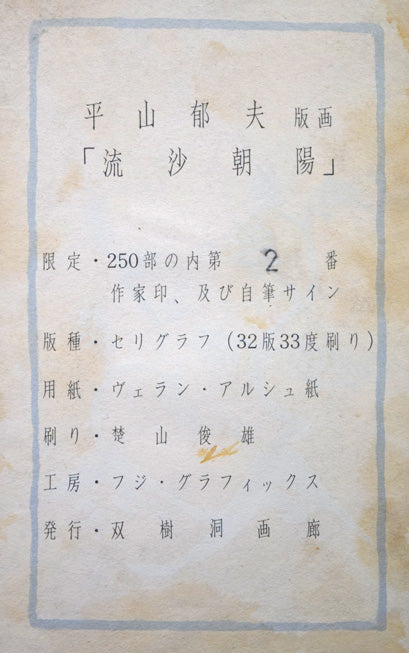 平山郁夫版画
「流沙朝陽」
限定・250部の内第 2 番
作家印、及び自筆サイン
版種・セリグラフ(32版33度刷り)
用紙・ヴェラン・アルシュ紙
刷り・楚山俊雄
工房・フジ・グラフィックス
発行・双樹洞画廊